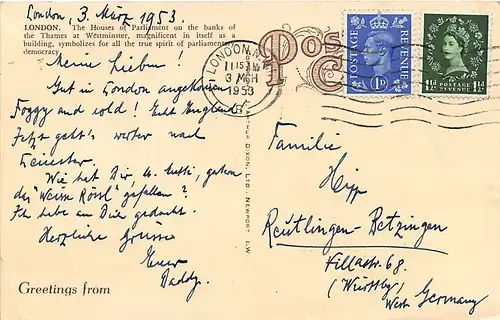 London, 3. März 1953.
LONDON. The Houses of Parliament on the banks of
the Thames at Westminster, magnificent in itself as a
building, symbolizes for all the true spirit of parliamentary
democracy.
Meine Lieben!
Gut in London angekommen
Foggy and cold! Echt England!
Jetzt geht's weiter nach
Leicester.
Wie hat Dir, u. Mutti, gestern
das "Weisse Rössl" gefallen?
Ich habe an Dich gedacht.
Herzliche Grüsse
Euer
Daddy.
Greetings from
ARTHUR DIXON, LTD., NEWPORT I.W.
Pos
C
LONDON, W.
11 15 AM
3 MCH
1953
POSTAGE REVENUE
1D
1½D 1½D
POSTAGE REVENUE
Familie
Hipp
Reutlingen-Betzingen
68.
(Württbg)
West Germany